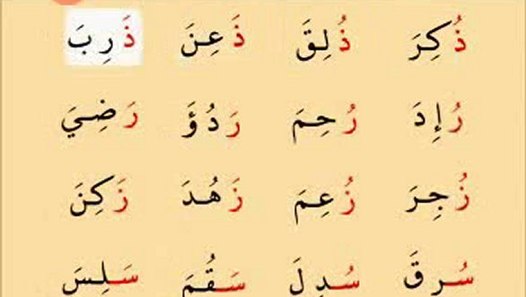 ذُكِرَ ذُلِقَ ذَعِنَ ذَرِبَ
رُإِدَ رُحِمَ رَدُؤَ رَضِيَ
زُجِرَ زُعِمَ زَهُدَ زَكِنَ
سُرِقَ سُدِلَ سَقُمَ سَلِسَ